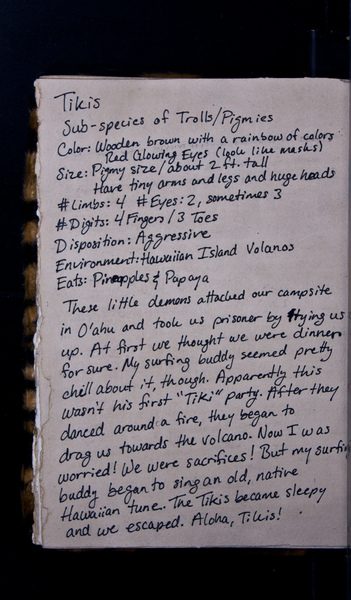 Tikis
Sub-species of Trolls/Pigmies
Color: Wooden brown with a rainbow of colors
Red Glowing Eyes (look like masks)
Size: Pigmy size/about 2 ft. tall
Have tiny arms and legs and huge heads
# Limbs: 4 # Eyes: 2, sometimes 3
# Digits: 4 Fingers/3 Toes
Disposition: Aggressive
Environment: Hawaiian Island Volanos
Eats: Pineapples & Papaya
These little demons attacked our campsite
in O'ahu and took us prisoner by tying us
up. At first we thought we were dinner
for sure. My surfing buddy seemed pretty
chill about it, though. Apparently this
wasn't his first "Tiki" party. After they
danced around a fire, they began to
drag us towards the volcano. Now I was
worried! We were sacrifices! But my surfin
buddy began to sing an old, native
Hawaiian tune. The Tikis became sleepy
and we escaped. Aloha, Tikis!